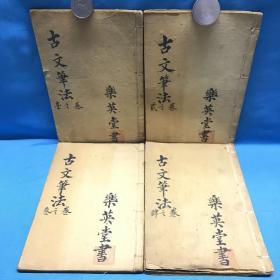 古文筆法
卷之壹
樂英堂書
古文筆法
卷之貳
樂英堂書
古文筆法
卷之叁
樂英堂書
古文筆法
卷之肆
樂英堂書